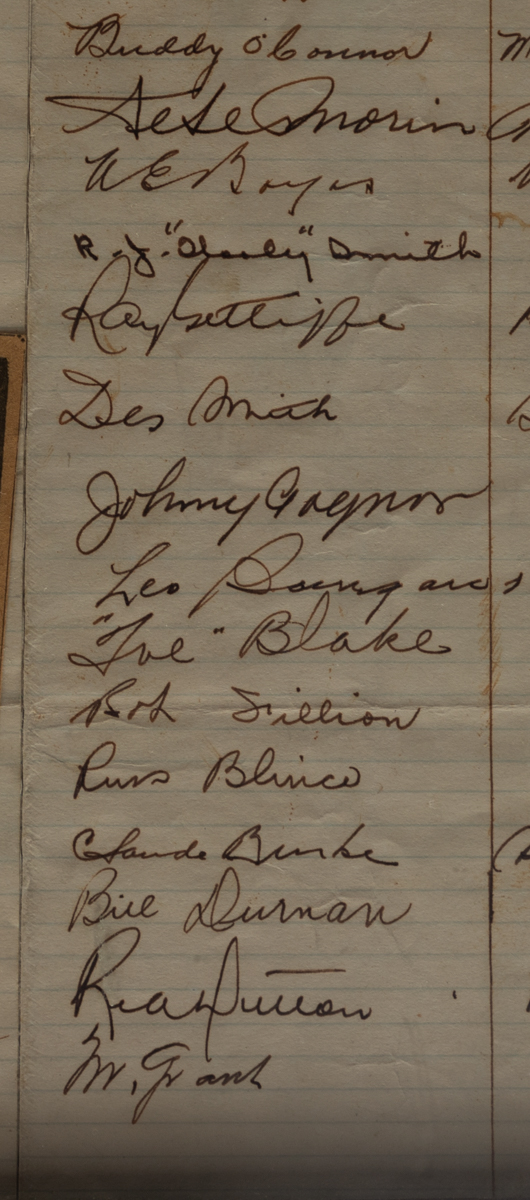 Buddy O'Connor M
Pete Morin
W E Boyes
R. J. "Dooly" Smith
Ray Getliffe
Des Smith
Johnny Gagnon
Leo Bourgault
"Toe" Blake
Bob Fillion
Russ Blinco
Claude Burke
Bill Durnan
Red Dutton
M. Grant